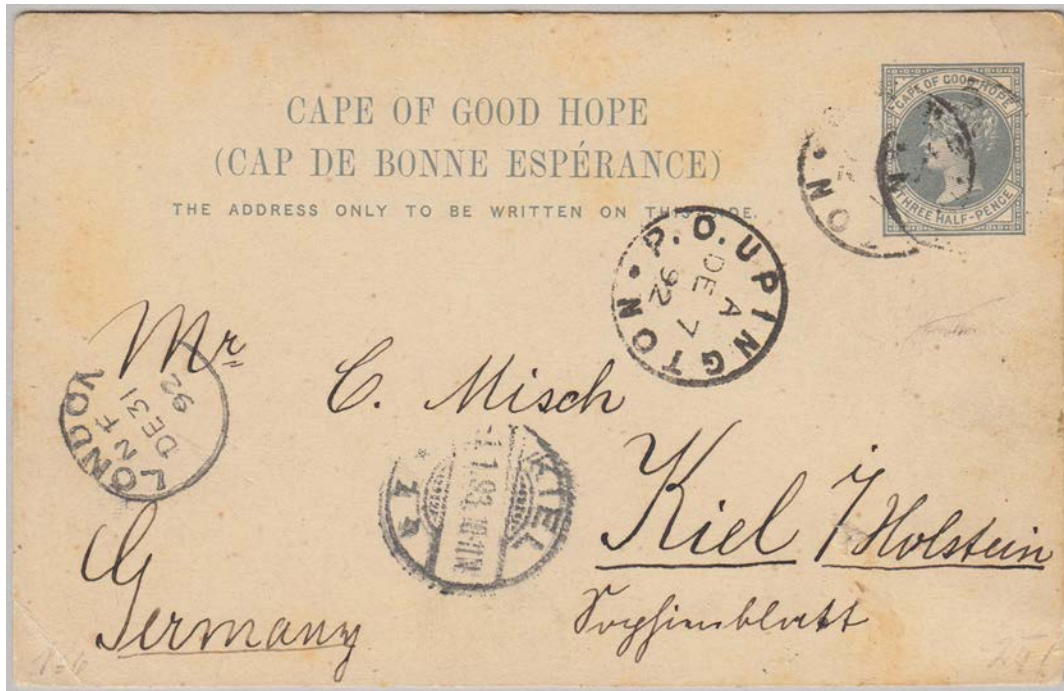 CAPE OF GOOD HOPE
(CAP DE BONNE ESPÉRANCE)
THE ADDRESS ONLY TO BE WRITTEN ON THIS SIDE.
CAPE OF GOOD HOPE
THREE HALF-PENCE
TON
P.O. UPINGTON
A
DE 7
92
Mr
C. Misch
LONDON
N F
DE 31
92
KIEL
1.1.93.10-11N.
Kiel i/Holstein
Germany
Sophienblatt